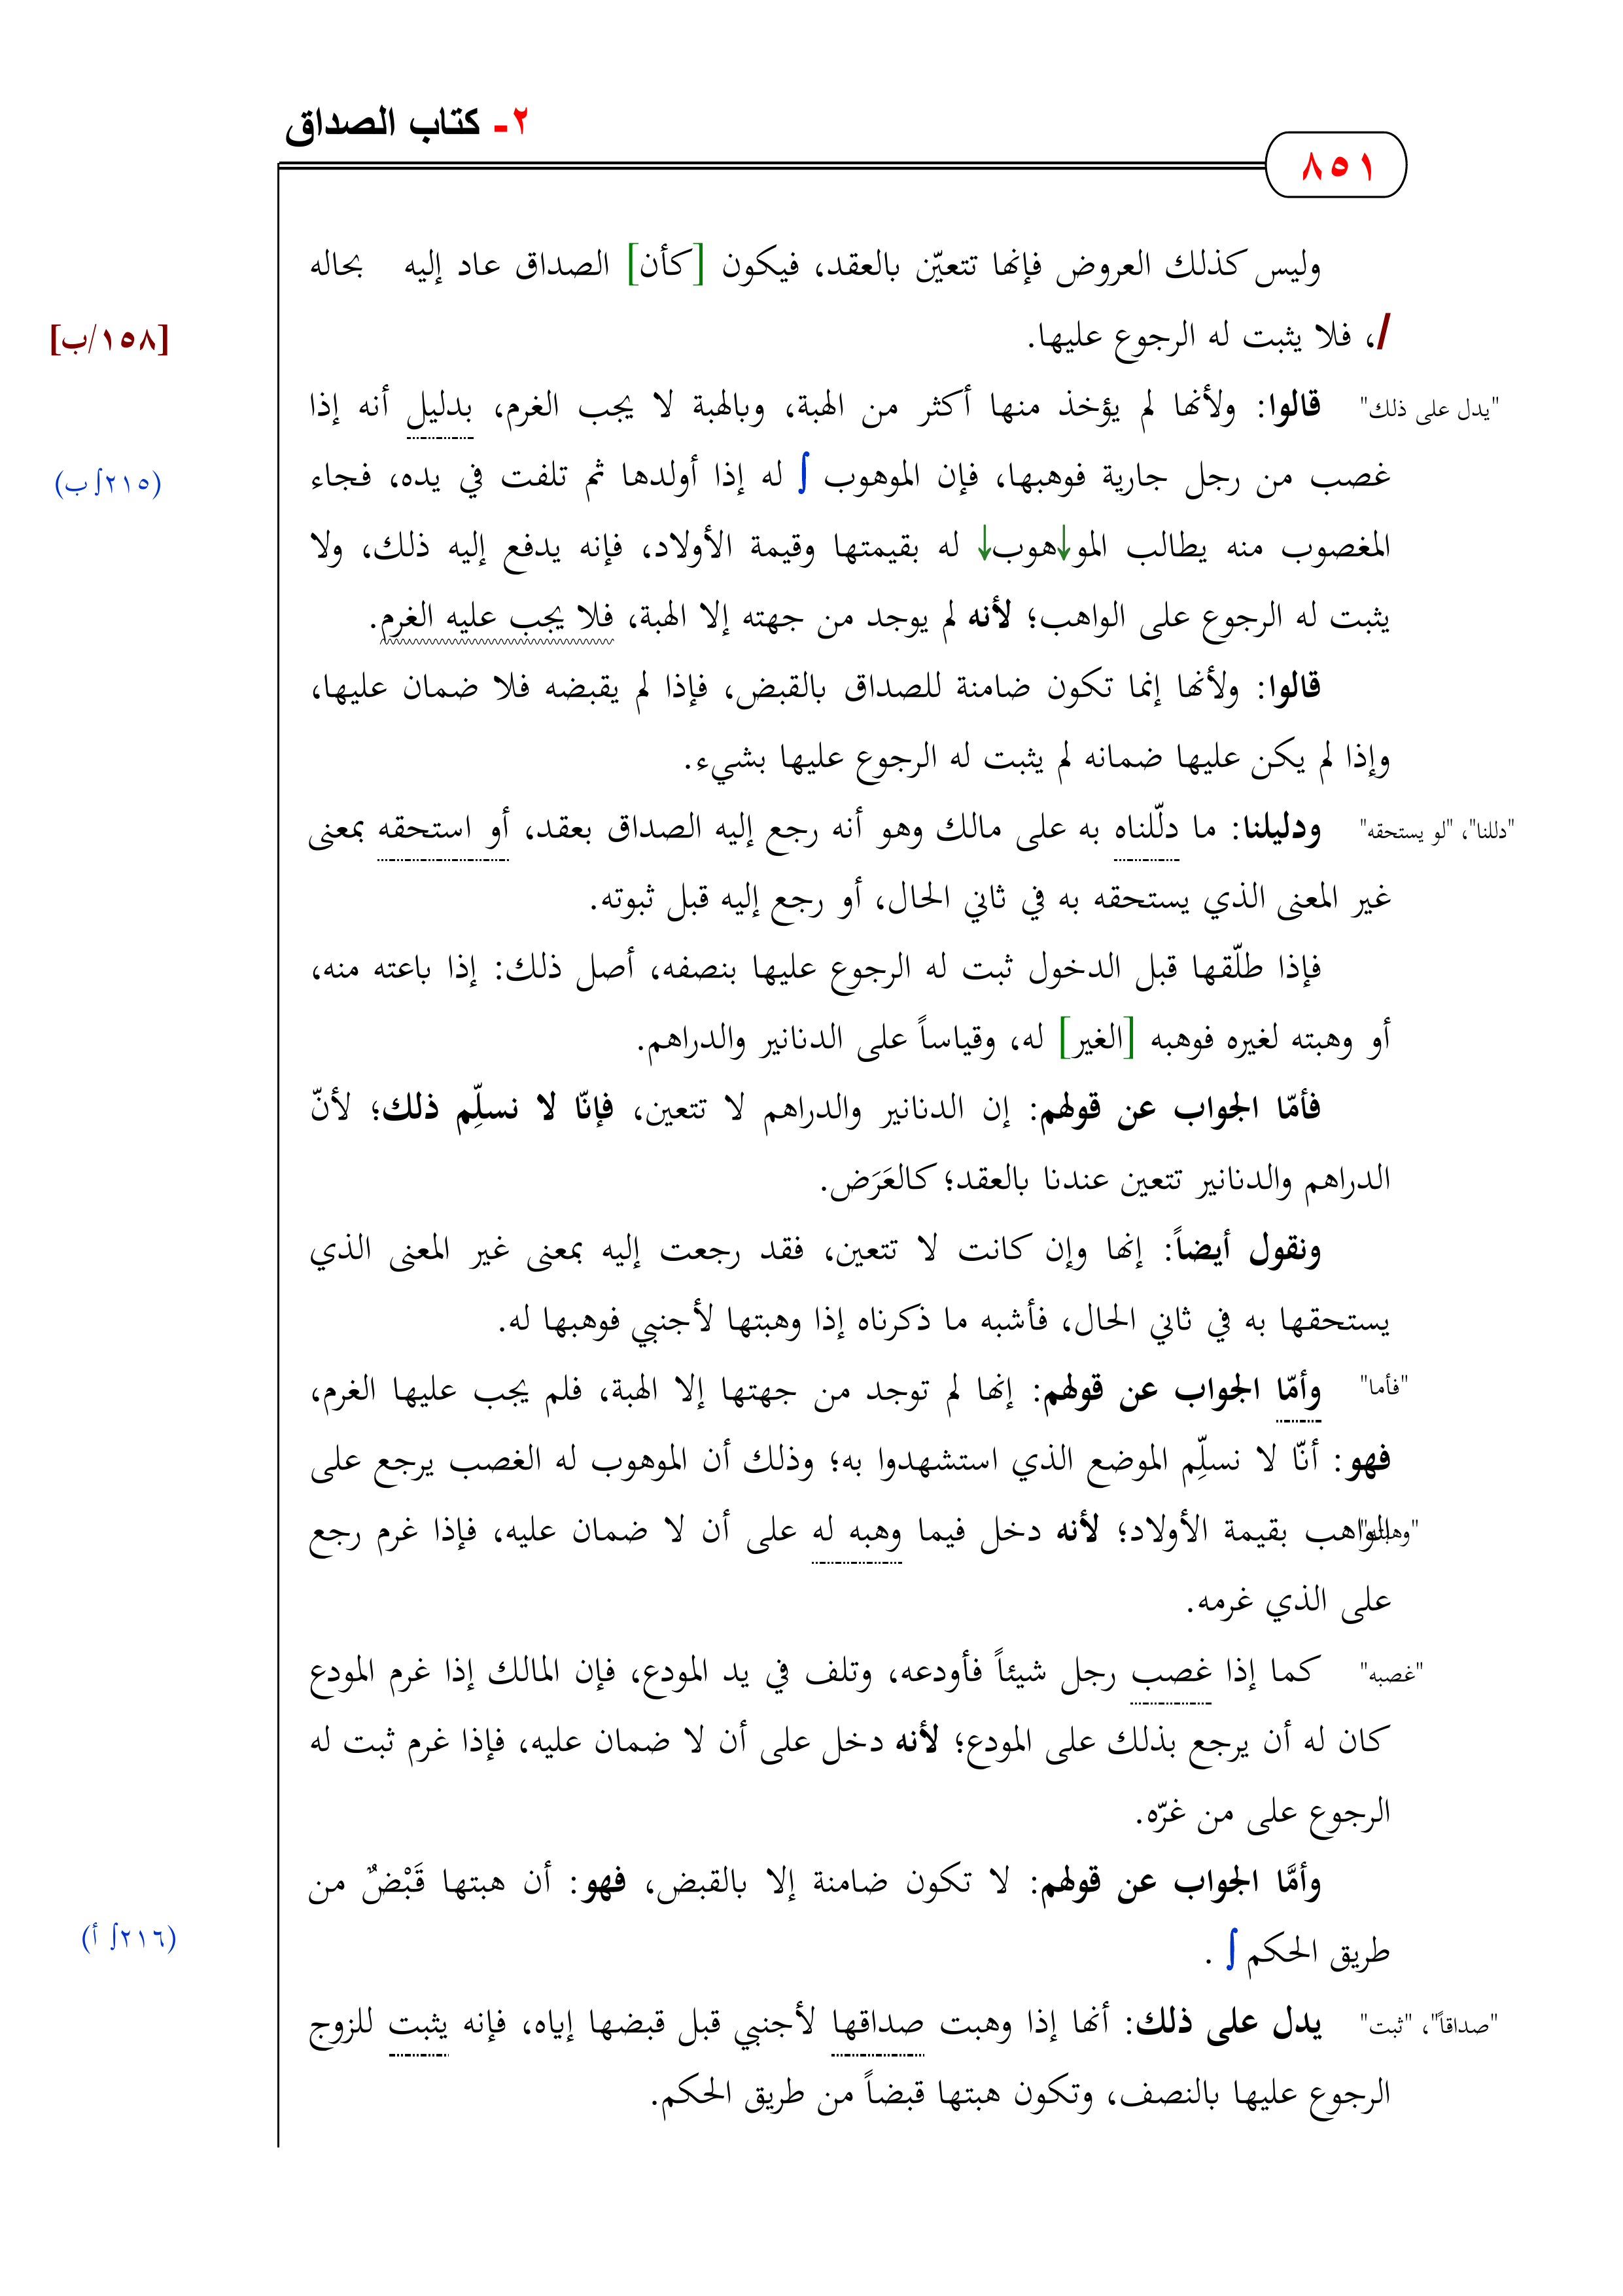 ٢- كتاب الصداق
٨٥١
وليس كذلك العروض فإنها تتعيّن بالعقد، فيكون [كأن] الصداق عاد إليه بحاله
/، فلا يثبت له الرجوع عليها.
[١٥٨/ب]
"يدل على ذلك"
قالوا: ولأنها لم يؤخذ منها أكثر من الهبة، وبالهبة لا يجب الغرم، بدليل أنه إذا
غصب من رجل جارية فوهبها، فإن الموهوب ∫ له إذا أولدها ثم تلفت في يده، فجاء
(٢١٥∫ ب)
المغصوب منه يطالب المو↓هوب↓ له بقيمتها وقيمة الأولاد، فإنه يدفع إليه ذلك، ولا
يثبت له الرجوع على الواهب؛ لأنه لم يوجد من جهته إلا الهبة، فلا يجب عليه الغرم.
قالوا: ولأنها إنما تكون ضامنة للصداق بالقبض، فإذا لم يقبضه فلا ضمان عليها،
وإذا لم يكن عليها ضمانه لم يثبت له الرجوع عليها بشيء.
"دللنا"، "لو يستحقه"
ودليلنا: ما دلّلناه به على مالك وهو أنه رجع إليه الصداق بعقد، أو استحقه بمعنى
غير المعنى الذي يستحقه به في ثاني الحال، أو رجع إليه قبل ثبوته.
فإذا طلّقها قبل الدخول ثبت له الرجوع عليها بنصفه، أصل ذلك: إذا باعته منه،
أو وهبته لغيره فوهبه [الغير] له، وقياساً على الدنانير والدراهم.
فأمّا الجواب عن قولهم: إن الدنانير والدراهم لا تتعين، فإنّا لا نسلِّم ذلك؛ لأنّ
الدراهم والدنانير تتعين عندنا بالعقد؛ كالعَرَض.
ونقول أيضاً: إنها وإن كانت لا تتعين، فقد رجعت إليه بمعنى غير المعنى الذي
يستحقها به في ثاني الحال، فأشبه ما ذكرناه إذا وهبتها لأجنبي فوهبها له.
"فأما"
وأمّا الجواب عن قولهم: إنها لم توجد من جهتها إلا الهبة، فلم يجب عليها الغرم،
فهو: أنّا لا نسلِّم الموضع الذي استشهدوا به؛ وذلك أن الموهوب له الغصب يرجع على
الواهب بقيمة الأولاد؛ لأنه دخل فيما وهبه له على أن لا ضمان عليه، فإذا غرم رجع
على الذي غرمه.
"غصبه"
كما إذا غصب رجل شيئاً فأودعه، وتلف في يد المودع، فإن المالك إذا غرم المودع
كان له أن يرجع بذلك على المودع؛ لأنه دخل على أن لا ضمان عليه، فإذا غرم ثبت له
الرجوع على من غرّه.
وأمَّا الجواب عن قولهم: لا تكون ضامنة إلا بالقبض، فهو: أن هبتها قَبْضٌ من
طريق الحكم ∫ .
(٢١٦∫ أ)
"صداقاً"، "ثبت"
يدل على ذلك: أنها إذا وهبت صداقها لأجنبي قبل قبضها إياه، فإنه يثبت للزوج
الرجوع عليها بالنصف، وتكون هبتها قبضاً من طريق الحكم.